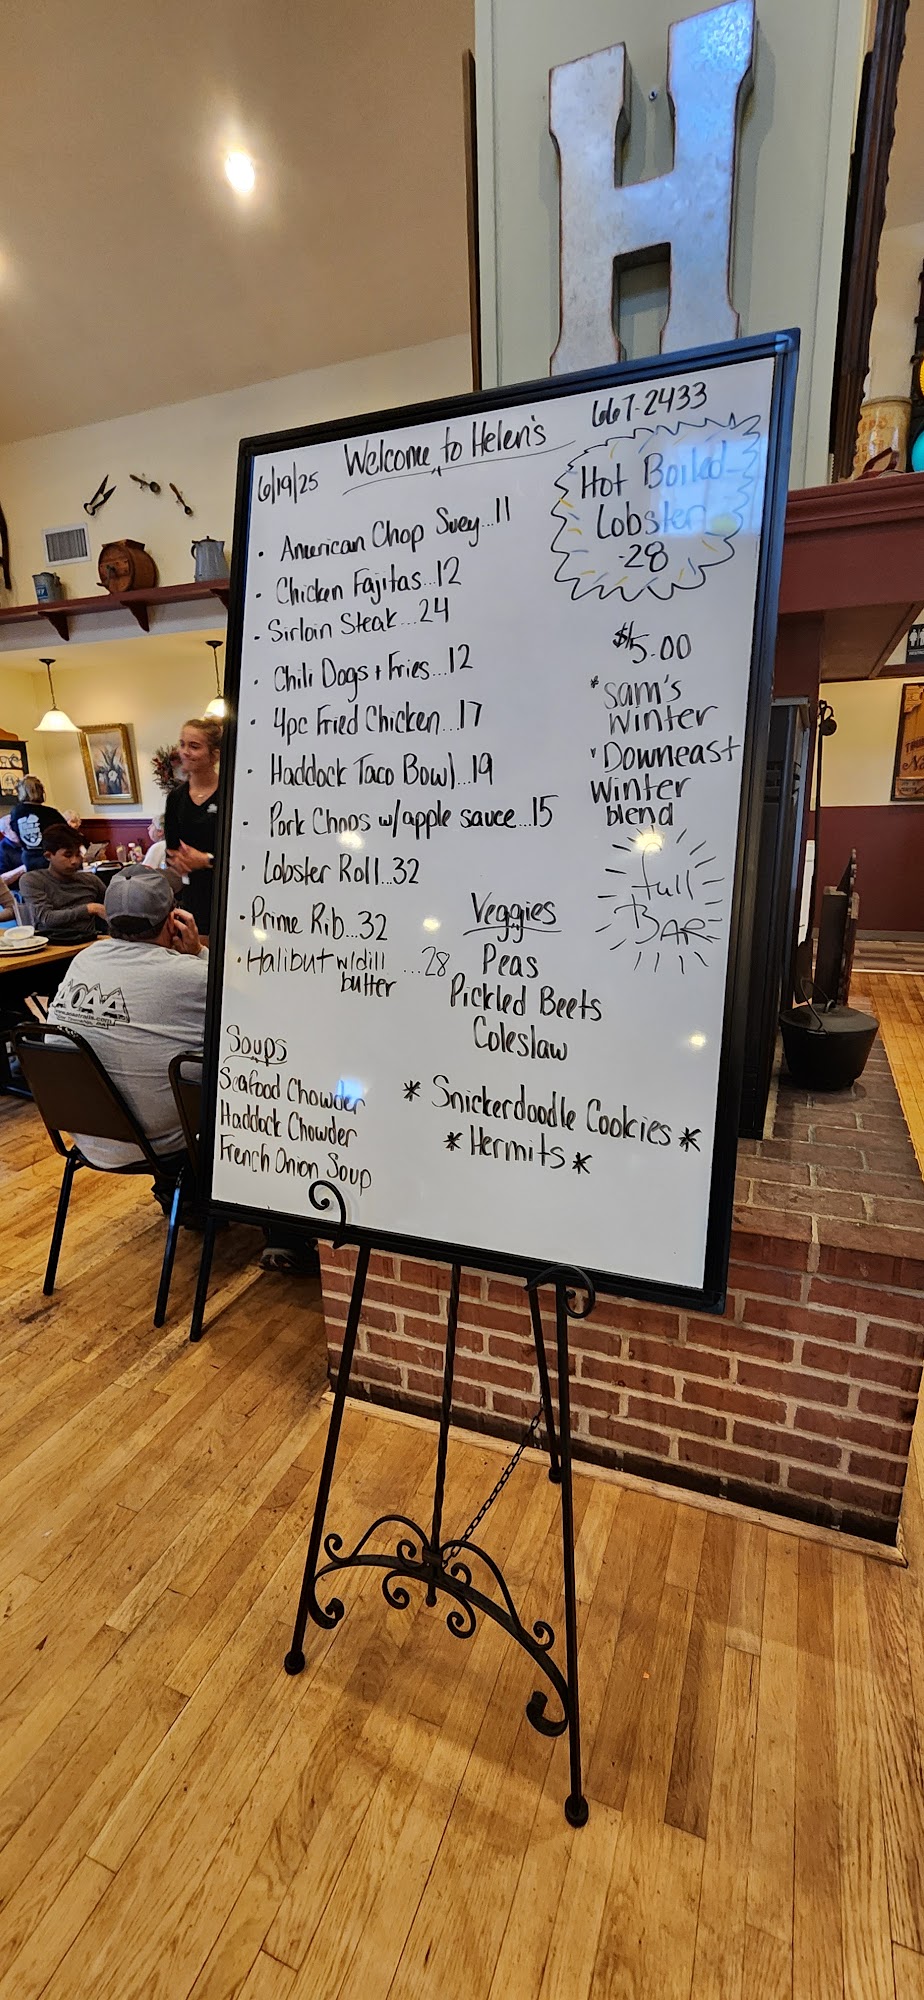 H
6/19/25 Welcome to Helen's 667-2433
• American Chop Suey...11
• Chicken Fajitas...12
• Sirloin Steak...24
• Chili Dogs + Fries...12
• 4pc Fried Chicken...17
• Haddock Taco Bowl...19
• Pork Chops w/apple sauce...15
• Lobster Roll...32
• Prime Rib...32
• Halibut w/dill ...28
butter
Soups
Seafood Chowder
Haddock Chowder
French Onion Soup
Hot Boiled
Lobster
-28
$5.00
*Sam's
Winter
*Downeast
Winter
blend
Full
BAR
Veggies
Peas
Pickled Beets
Coleslaw
* Snickerdoodle Cookies *
* Hermits *